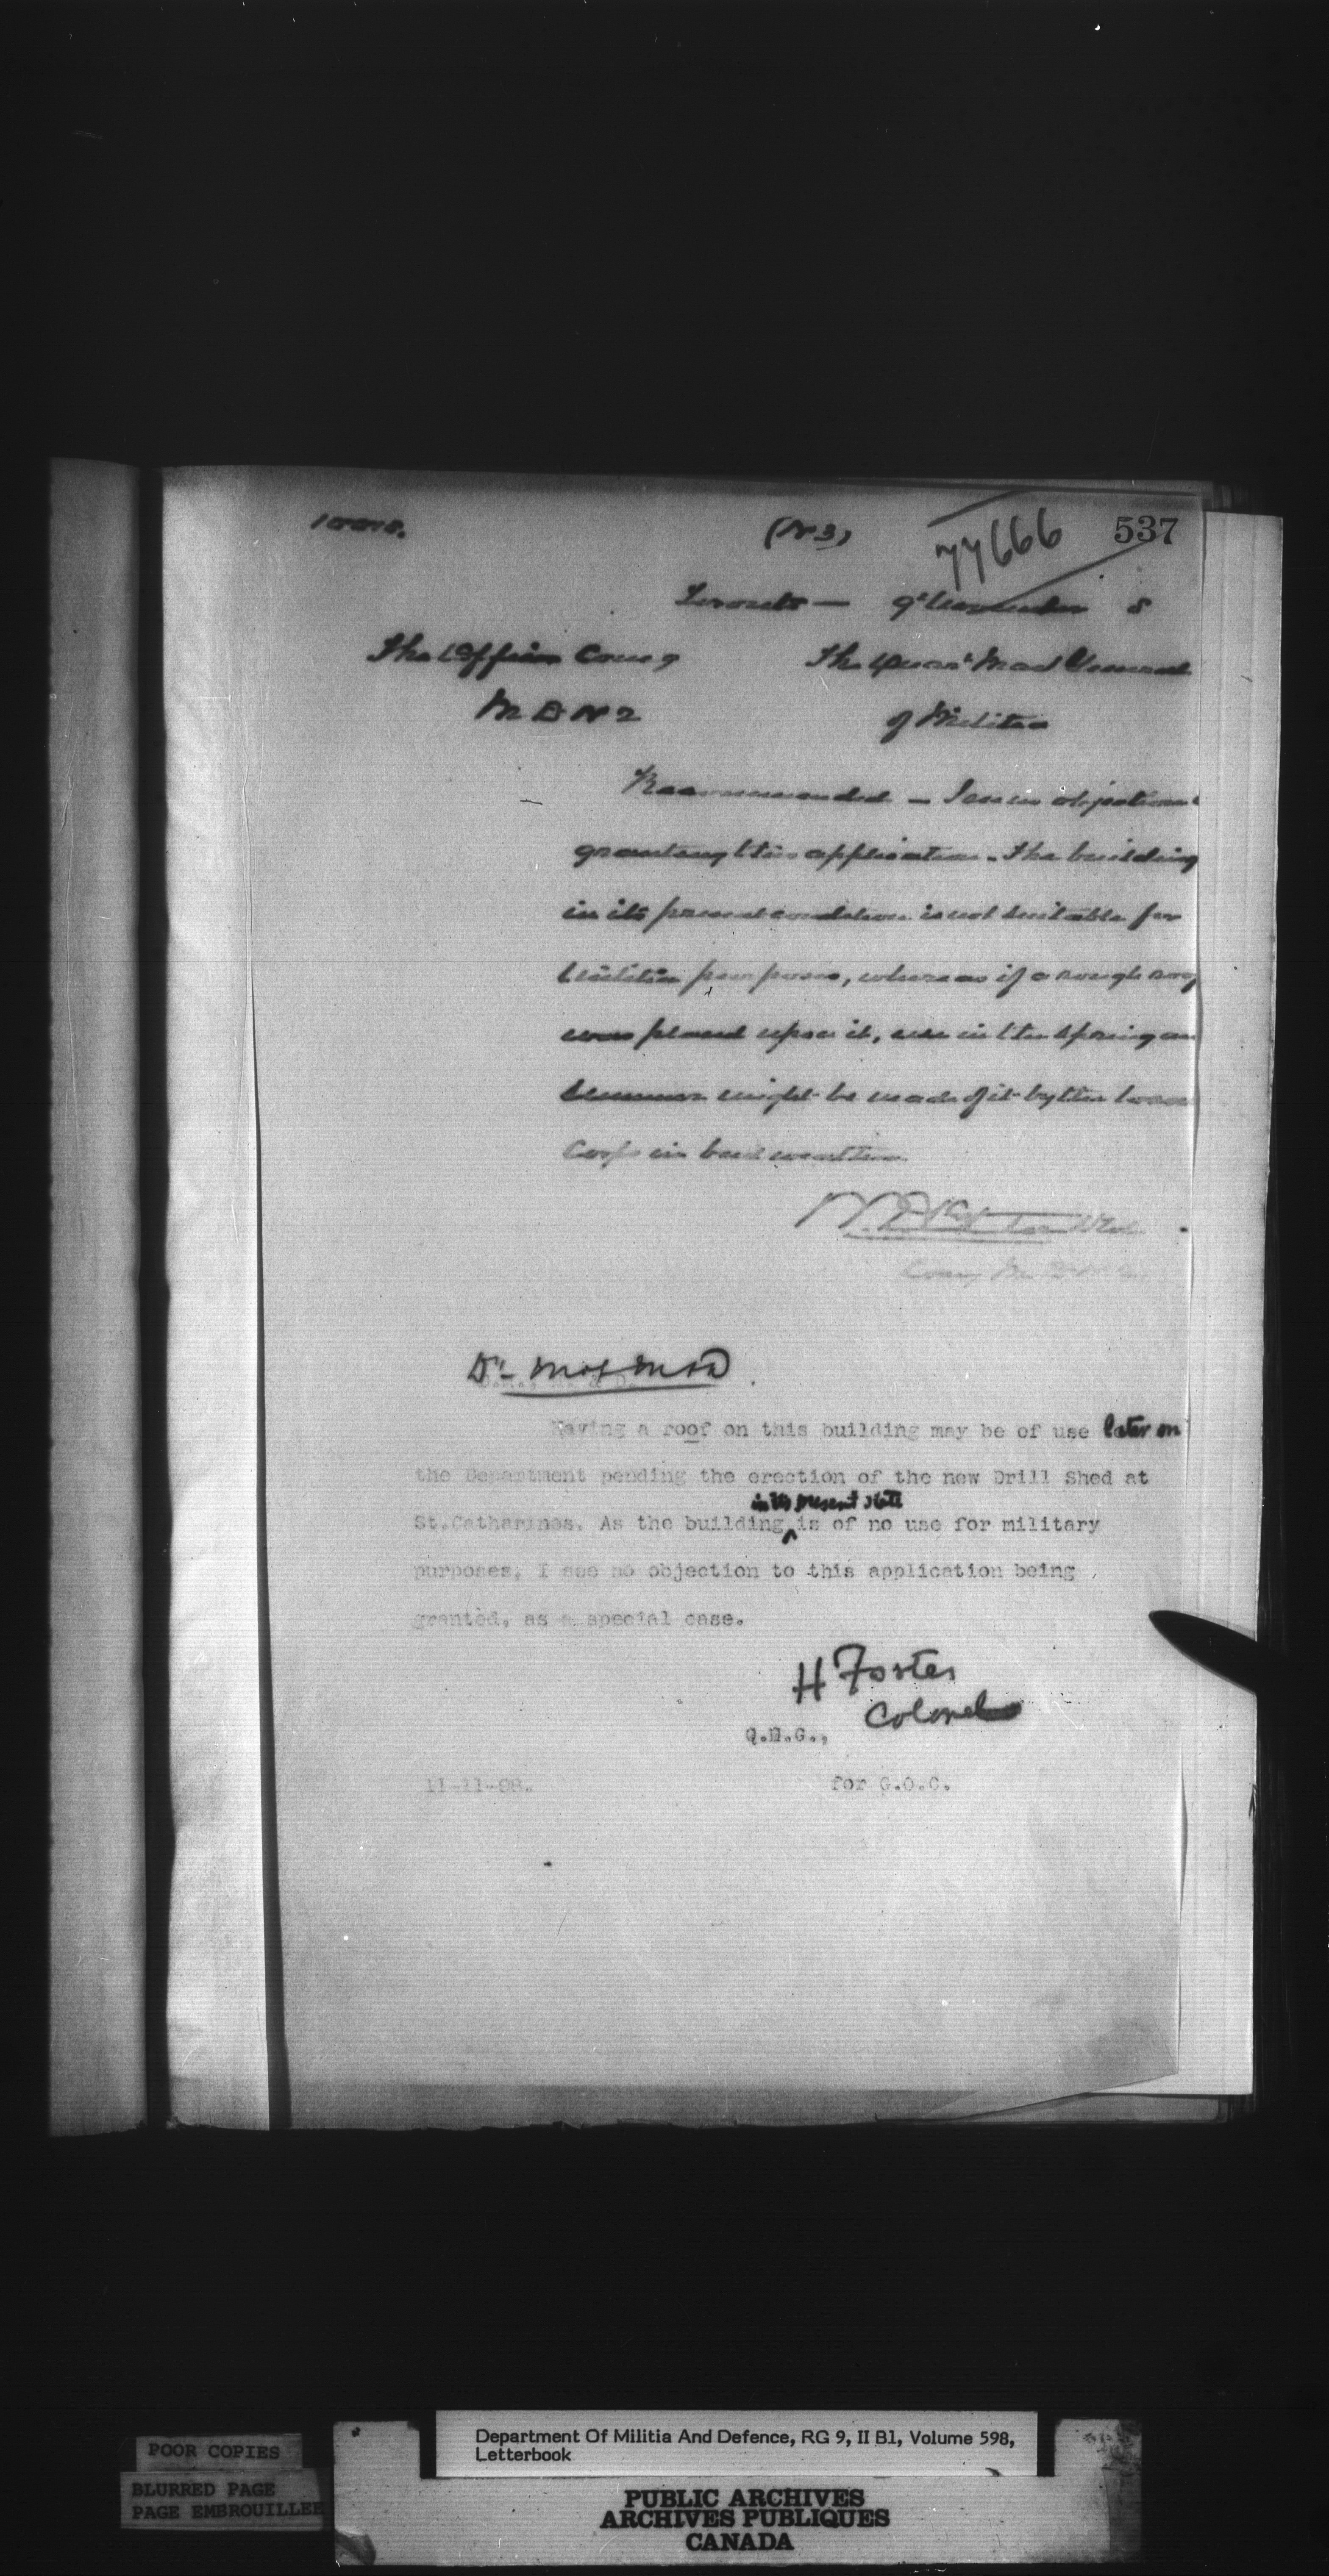 (No 3)
77666
537
Toronto — 9th November 8
The Officer Comg
The Quar Mas General
M D No 2
of Militia
Recommended — I see no objection
granting this application. The building
in its present condition is not suitable for
Militia purposes, whereas if a rough roof
was placed upon it, use in the spring an
Summer might be made of it by the local
Corps in bad weather
Comg M D No 2
Having a roof on this building may be of use later on
the Department pending the erection of the new Drill Shed at
in its present state
St.Catharines. As the building ^ is of no use for military
purposes, I see no objection to this application being
granted, as a special case.
H Foster
Colonel
Q.M.G.,
11-11-98.
for G.O.C.
POOR COPIES
BLURRED PAGE
PAGE EMBROUILLEE
Department Of Militia And Defence, RG 9, II B1, Volume 598,
Letterbook
PUBLIC ARCHIVES
ARCHIVES PUBLIQUES
CANADA